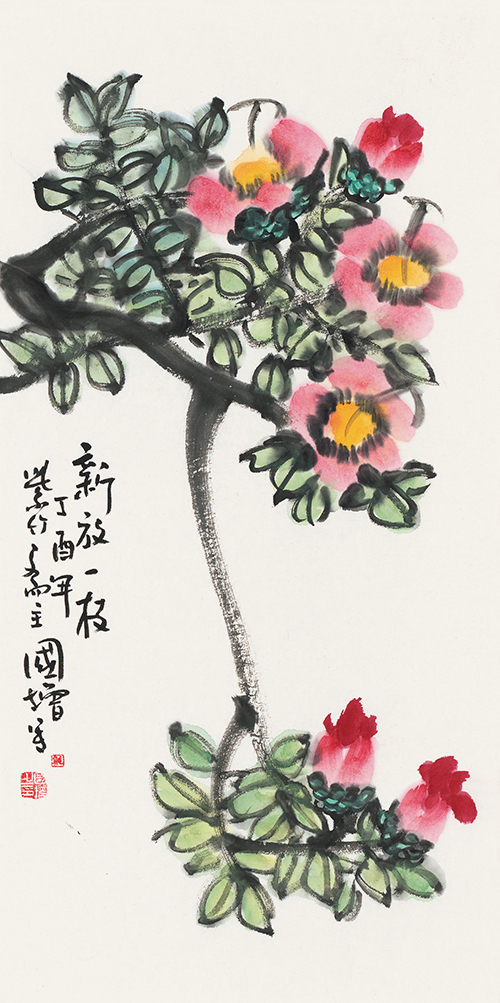 新放一枝
丁酉年
紫竹斋主國增写